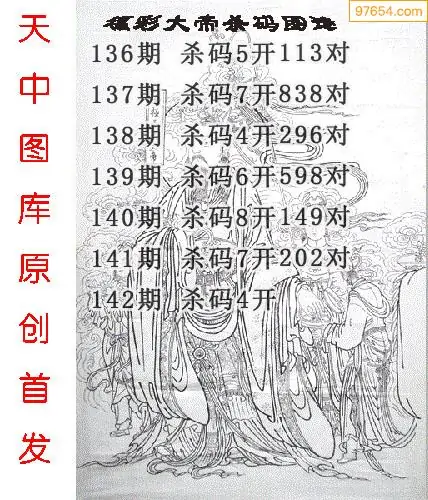 97654.com
福彩大帝杀码图迷
136期 杀码5开113对
137期 杀码7开838对
138期 杀码4开296对
139期 杀码6开598对
140期 杀码8开149对
141期 杀码7开202对
142期 杀码4开
天中图库原创首发